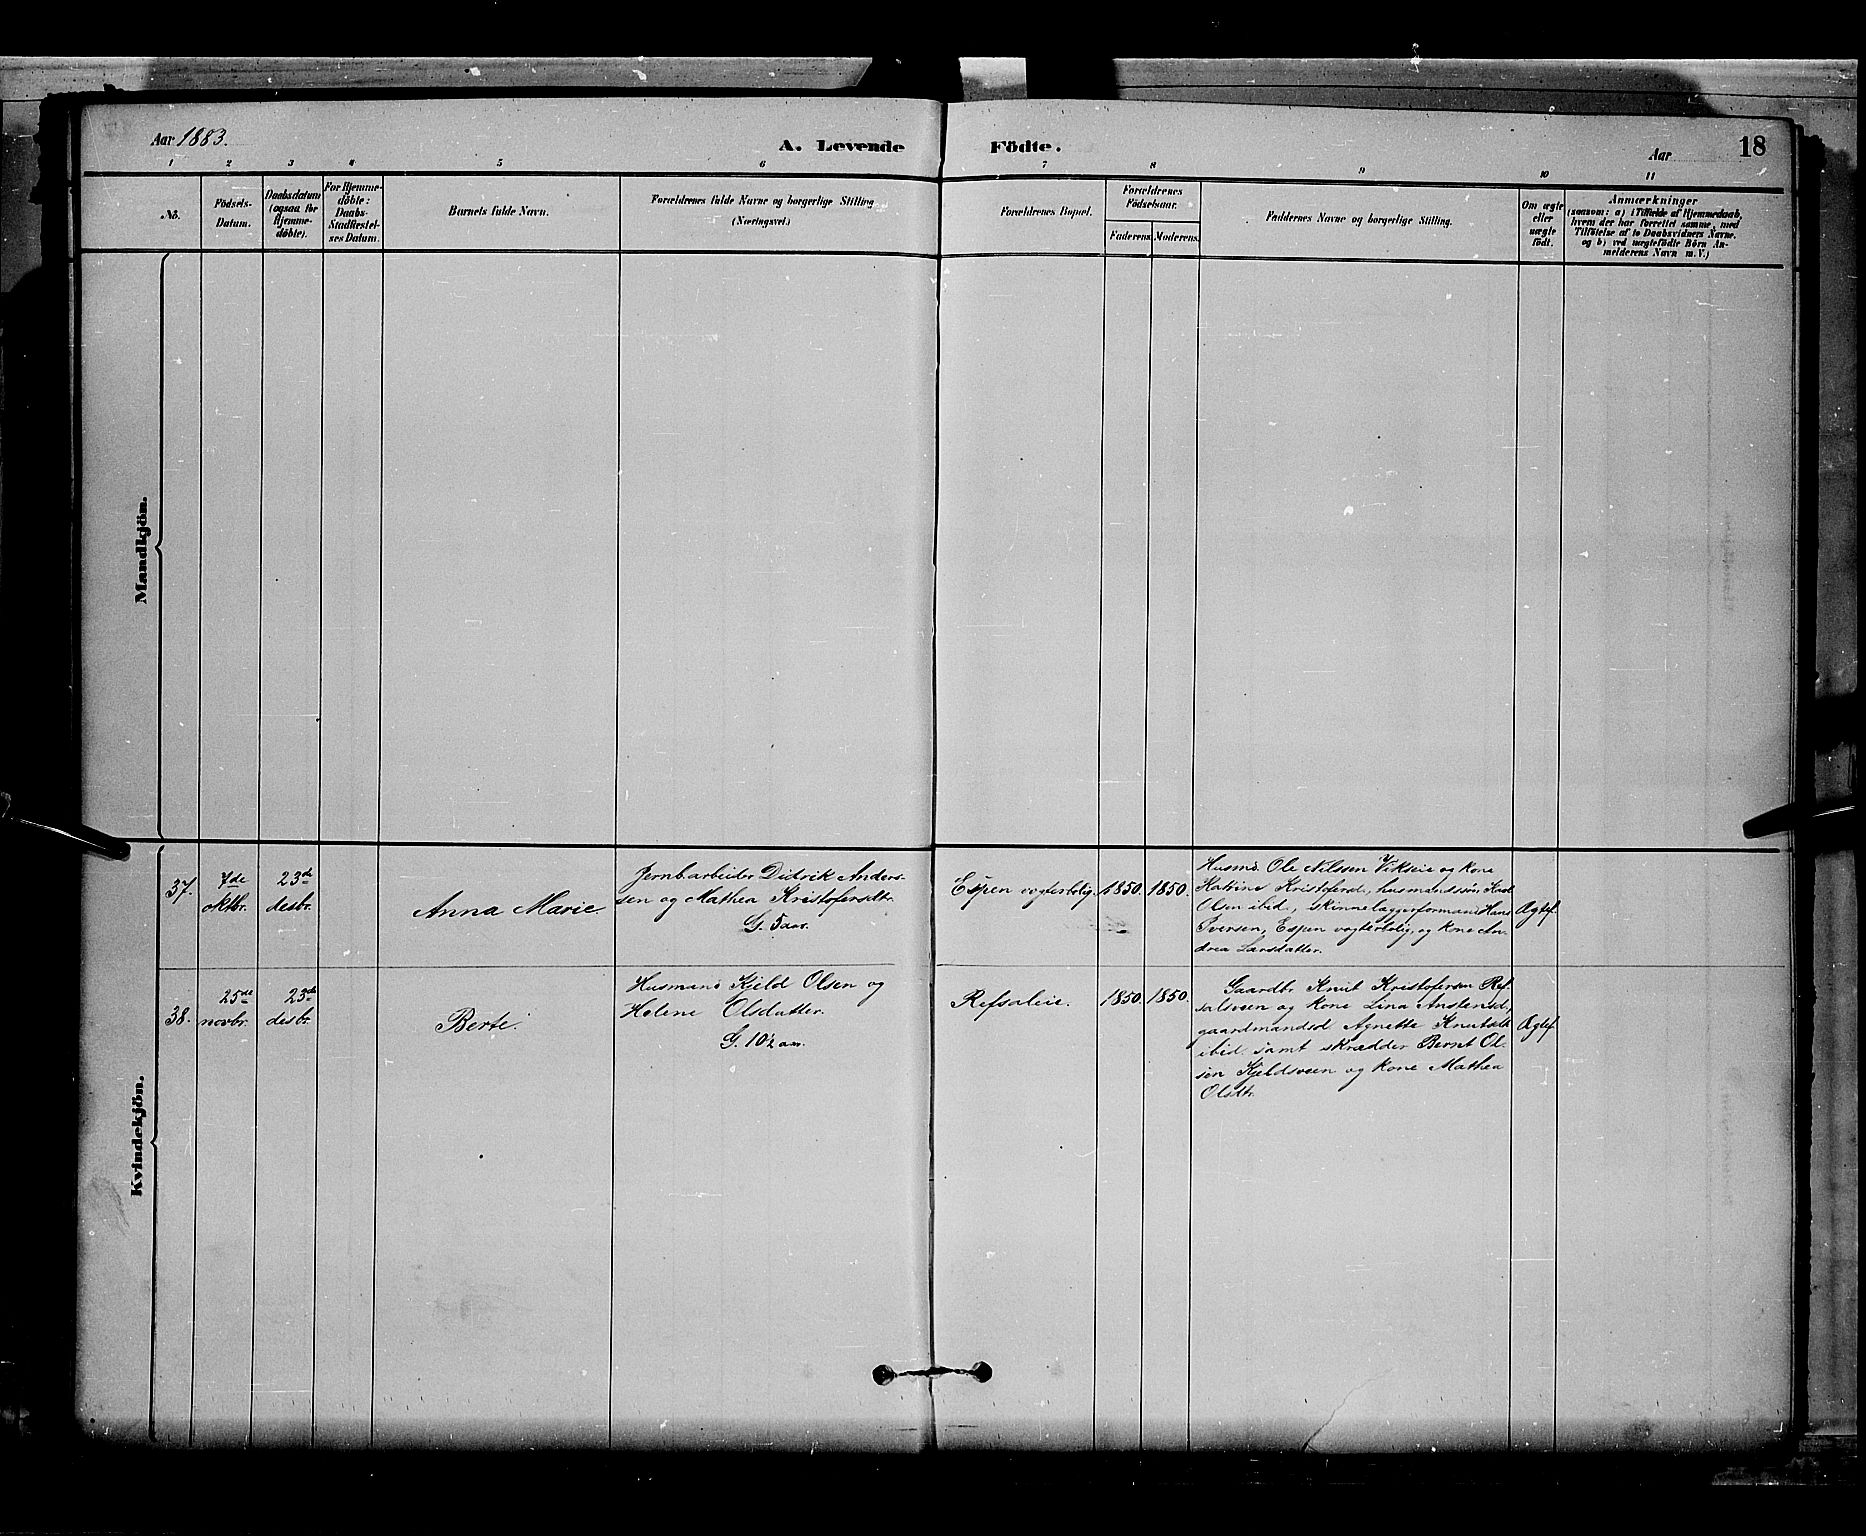 Aar 1883.
A. Levende Födte.
Aar
18
1 2 3 4 5 6 7 8 9 10 11
No.
Födsels-
Datum.
Daabsdatum
(ogsaa for
Hjemme-
döbte).
For Hjemme-
döbte:
Daabs-
Stadfæstel-
ses Datum.
Barnets fulde Navn.
Forældrenes fulde Navne og borgerlige Stilling
(Næringsvei.)
Forældrenes Bopæl.
Forældrenes
Födselsaar.
Faderens. Moderens.
Faddernes Navne og borgerlige Stilling.
Om ægte
eller
uægte
födt.
Anmærkninger
(saasom: a) i Tilfælde af Hjemmedaab,
hvem der har forrettet samme, med
Tilföielse af to Daabsvidners Navne.
og b) ved uægtefödte Börn An-
melderens Navn m. V.)
Mandkjön.
Kvindekjön.
37.
7de
oktbr.
23de
desbr.
Anna Marie.
Jernbarbeider Didrik Anders-
sen og Mathea Kristofersdtr.
G. 5 aar.
Espen vogterbolig.
1850. 1850.
Husmd. Ole Nilssen Vikseie og kone
Katrine Kristoferd, husmandssön Karl
Olsen ibid, skinnelæggerformand Hans
Iversen, Espen vogterbolig, og kone An-
drea Larsdatter.
Ægtef.
38.
25de
novbr.
23de
desbr.
Berte.
Husmand Kjeld Olsen og
Helene Olsdatter.
G. 10½ aar.
Refsaleie.
1850. 1850.
Gaardbr. Knut Kristofersen Ref-
salsveen og kone Lina Anstensd,
gaardmandsd Agnette Knutsdt
ibid. samt skrædder Bernt Ol-
sen Kjeldsveen og kone Mathea
Olsdtr.
Ægtef.